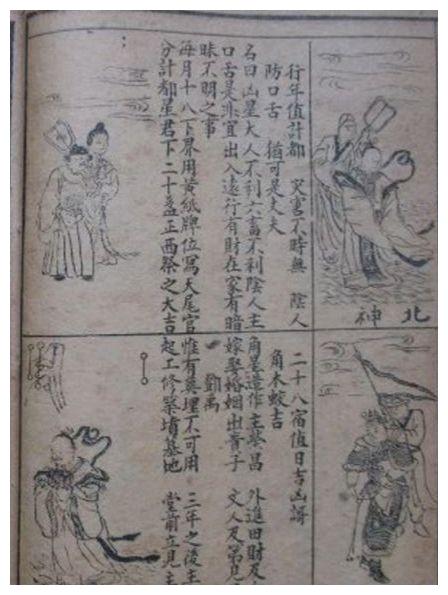 北神
行年值計都 災害不時無 陰人
防口舌 猶可是丈夫
名曰凶星大人不利六畜不利陰人主
口舌是非宜出入遠行有財在家有暗
昧不明之事
每月十八下界用黃紙牌位寫天尾宫
分計都星君下二十盞正西祭之大吉
二十八宿值日吉凶
角木蛟吉
鄧禹
角星造作主榮昌 外進田財及
嫁娶婚姻出貴子 文人及第見
惟有葬埋不可用 三年之後主
起工修築墳墓地 堂前立見主